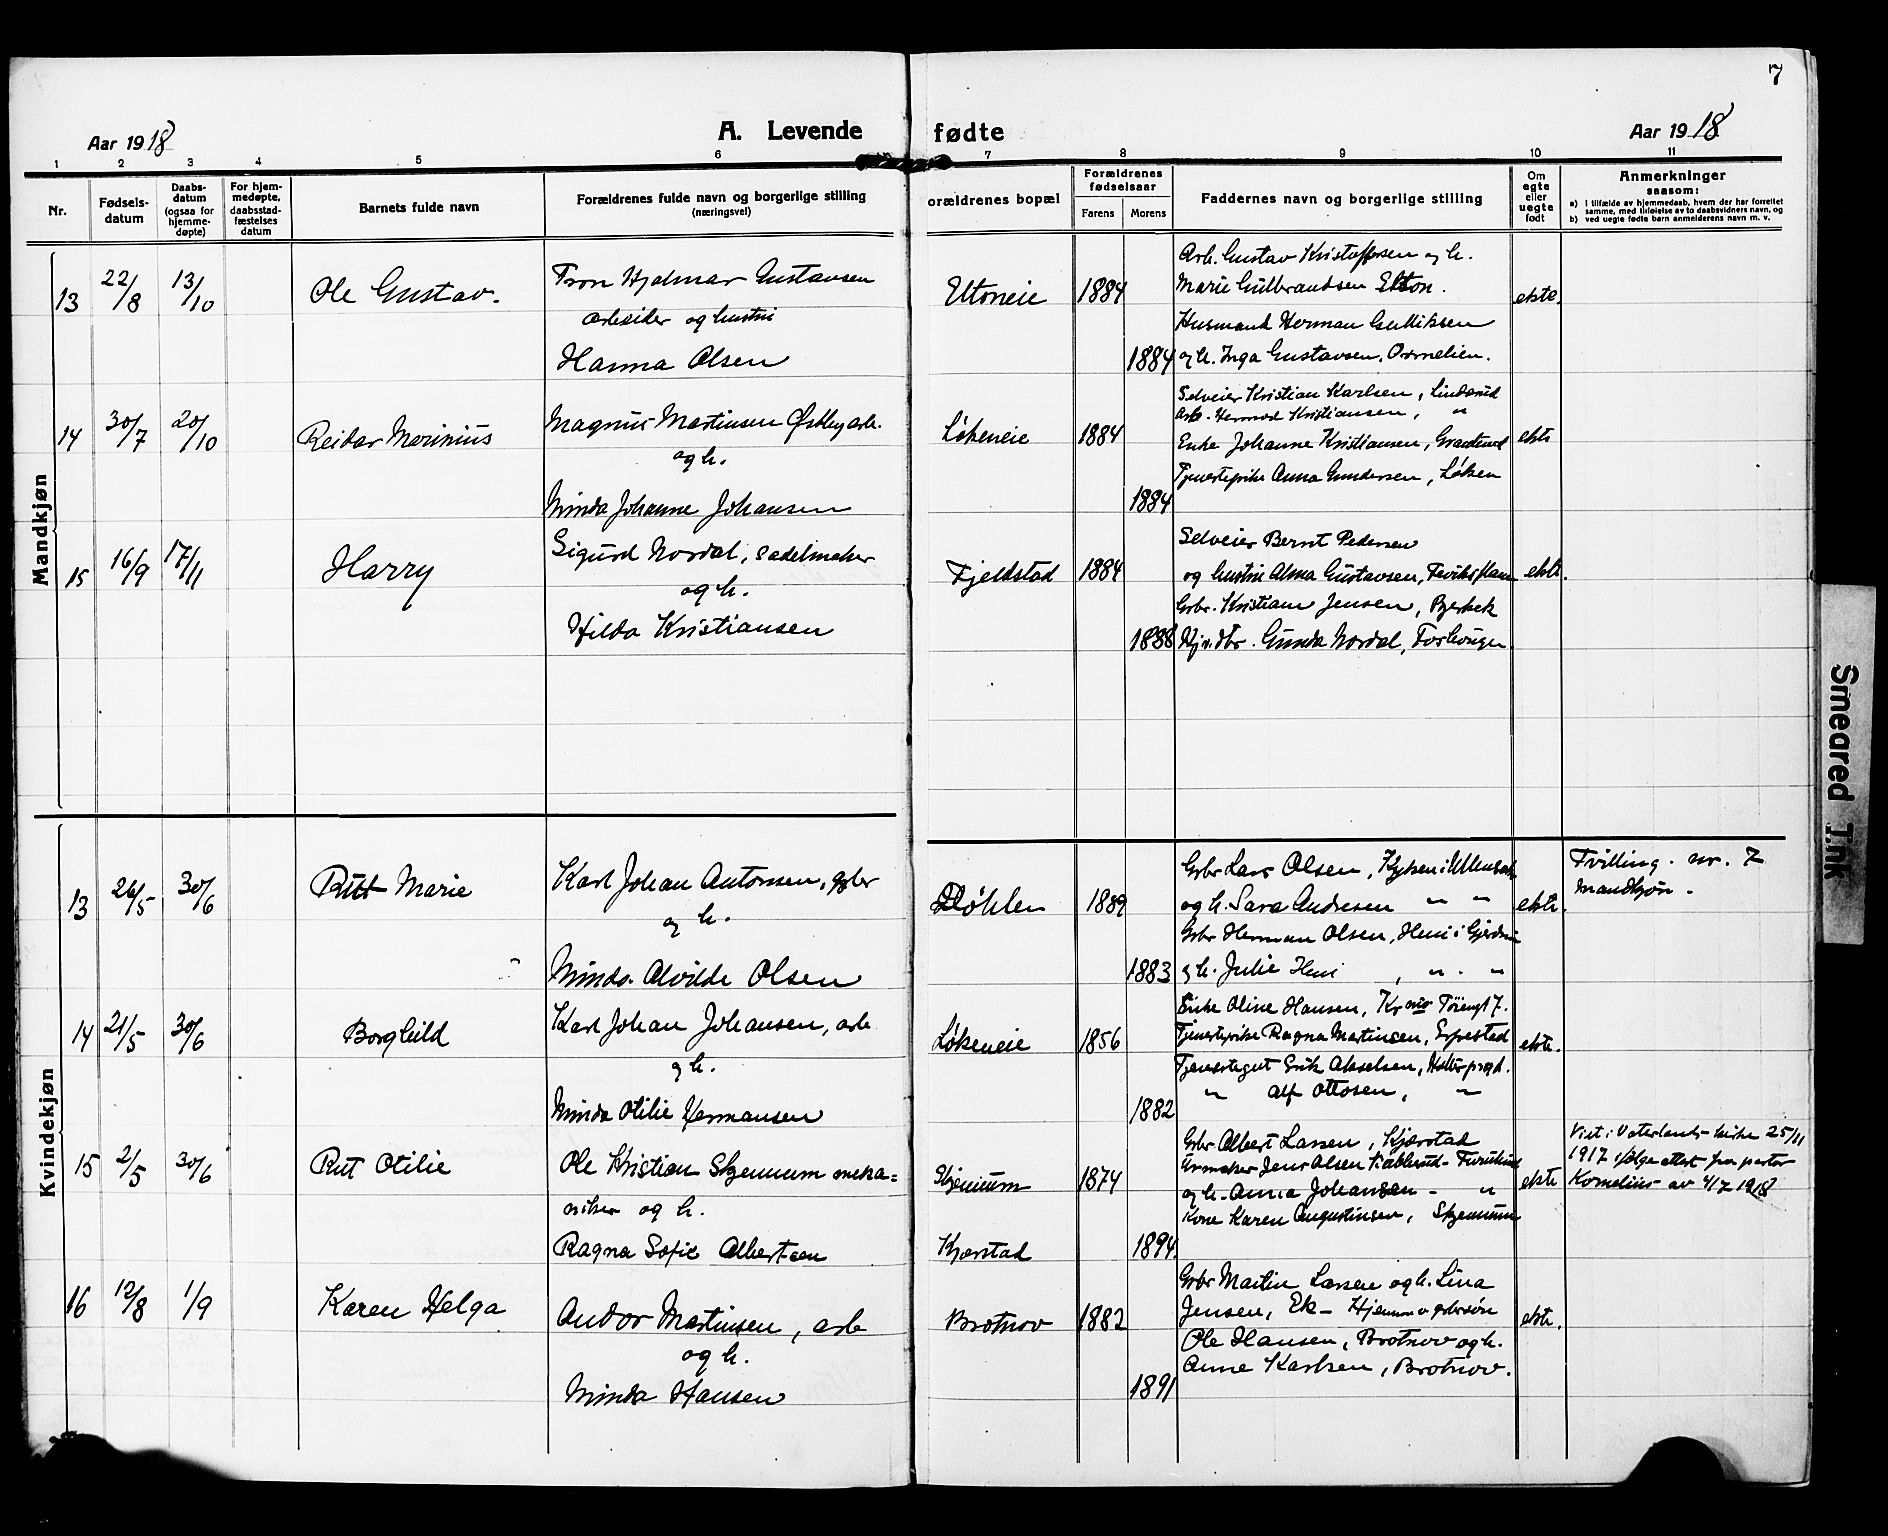 7
Aar 1918
A. Levende fødte
Aar 1918
1 2 3 4 5 6 7 8 9 10 11
Nr.
Fødsels-
datum
Daabs-
datum
(ogsaa for
hjemme-
døpte)
For hjem-
medøpte,
daabsstad-
fæstelses
datum
Barnets fulde navn
Forældrenes fulde navn og borgerlige stilling
(næringsvei)
orældrenes bopæl
Forældrenes
fødselsaar
Farens
Morens
Faddernes navn og borgerlige stilling
Om
egte
eller
uegte
født
Anmerkninger
saasom:
a) i tilfælde av hjemmedaab, hvem der har forrettet
samme, med tilføielse av to daabsvidners navn, og
b) ved uegte fødte børn anmelderens navn m. v.
Mandkjøn
13 22/8 13/10
Ole Gustav.
Tron Hjalmar Gustavsen
arbeider og hustru
Hanna Olsen
Eltoneie
1884
1884
Arb. Gustav Kristoffersen og h.
Marie Gulbrandsen Elton.
Husmand Herman Gulliksen
og h. Inga Gustavsen, Ormelien.
ekte.
14 30/7 20/10
Reidar Marinius
Magnus Martinsen Østby arb.
og h.
Minda Johanne Johansen
Løkeneie
1884
1884
Selveier Kristian Karlsen, Linderud
Arb. Hermod Kristiansen, "
Enke Johanne Kristiansen,
Tjenestepike Anna Gundersen, Løken
ekte
15 16/9 17/11
Harry
Sigurd Nordal, sadelmaker
og h.
Hilda Kristiansen
Fjeldstad
1884
1888
Selveier Bernt Pedersen
og hustru Alma Gustavsen,
Grbr. Kristian Jensen, Bjerkek
Gunda Nordal,
ekte.
Kvindekjøn
13 26/5 30/6
Rutt Marie
Karl Johan Antonsen, grbr
og h.
Minda Alvilde Olsen
Døhlen
1889
1883
Grbr Lars Olsen,
og h. Sara Andresen " "
Grbr Herman Olsen, Heni i Gjerdrum
og h. Julie Heni, " - "
ekte.
Tvilling. nr. 7
Mandkjøn.
14 21/5 30/6
Borghild
Karl Johan Johansen, arb
og h.
Minda Otilie Hermansen
Løkeneie
1856
1882
Enke Oline Hansen,
Tjenestepike Ragna Martinsen,
Tjenestegut Erik Akselsen,
" Alf Ottosen, "
ekte.
15 2/5 30/6
Rut Otilie
Ole Kristian Skjennum meka=
niker og h.
Ragna Sofie Albertsen
Skjennum
Kjærstad
1874
1894.
Grbr Albert Larsen, Kjærstad
Urmaker Jens Olsen Furulund
og h. Anna Johansen - "
Kone Karen Augustinsen, Skjennum
ekte
Viet i Vaterlands kirke 25/11
1917 ifølge attest fra pastor
Kornelius av 4/7 1918
16 12/8 1/9
Karen Helga
Andor Martinsen, arb
og h.
Minda Hansen
Brotnov
1882
1891
Grbr Martin Larsen og h. Lina
Jensen, Ek - Hjemmev. grbrsøn
Ole Hansen, Brotnov og h.
Anne Karlsen, Brotnov.
ekte.
Smeared Ink